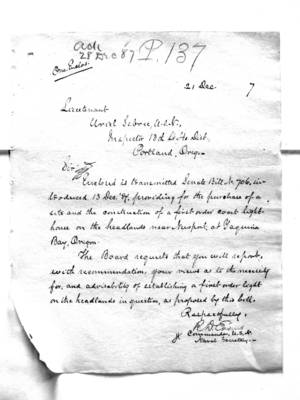 Ack
28 Dec 87 P. 137
One Enclos.
21 Dec 7
Lieutenant
Uriel Sebree, U.S.N.,
Inspector 13th L. Ho. Dist.
Portland, Oregon
Sir:
Enclosed is transmitted Senate Bill No. 706, in-
troduced 13 Dec. 87, providing for the purchase of a
site and the construction of a first order coast light-
house on the headlands near Newport, at Yaquina
Bay, Oregon.
The Board requests that you will report,
with recommendation, your views as to the necessity
for, and advisability of establishing a first order light
on the headlands in question, as proposed by this bill.
Respectfully,
Commander, U.S.N.
Naval Secretary.